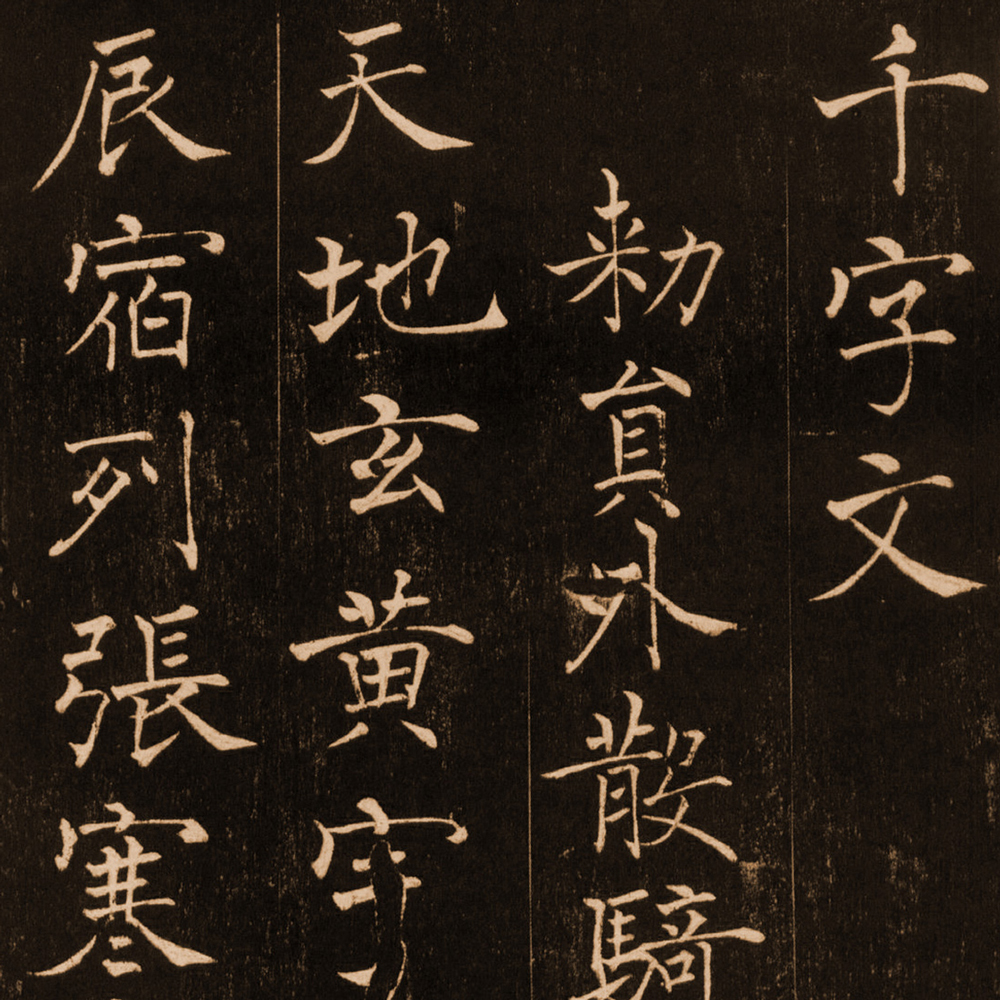 千字文
勑員外散騎
天地玄黄宇
辰宿列張寒